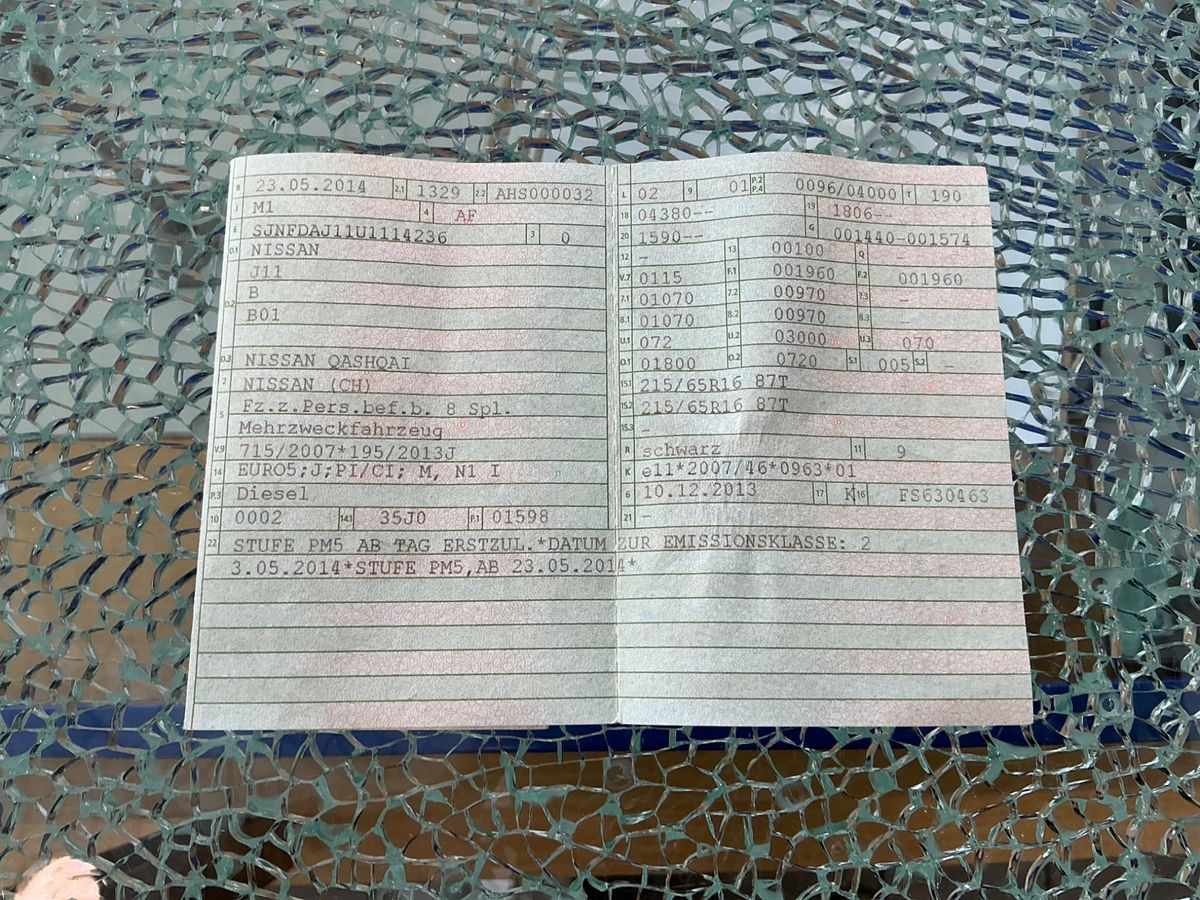 B 23.05.2014 2.1 1329 2.2 AHS000032
J M1 4 AF
E SJNFDAJ11U1114236 3 0
D.1 NISSAN
J11
D.2 B
B01
D.3 NISSAN QASHQAI
2 NISSAN (CH)
5 Fz.z.Pers.bef.b. 8 Spl.
Mehrzweckfahrzeug
V.9 715/2007*195/2013J
14 EURO5;J;PI/CI; M, N1 I
P.3 Diesel
10 0002 14.1 35J0 P.1 01598
L 02 9 01 P.2 P.4 0096/04000 T 190
18 04380-- 19 1806--
20 1590-- G 001440-001574
12 - 13 00100 Q -
V.7 0115 F.1 001960 F.2 001960
7.1 01070 7.2 00970 7.3 -
8.1 01070 8.2 00970 8.3 -
U.1 072 U.2 03000 U.3 070
O.1 01800 O.2 0720 S.1 005 S.2 -
15.1 215/65R16 87T
15.2 215/65R16 87T
15.3 -
R schwarz 11 9
K e11*2007/46*0963*01
6 10.12.2013 17 K 16 FS630463
21 -
22 STUFE PM5 AB TAG ERSTZUL.*DATUM ZUR EMISSIONSKLASSE: 2
3.05.2014*STUFE PM5,AB 23.05.2014*